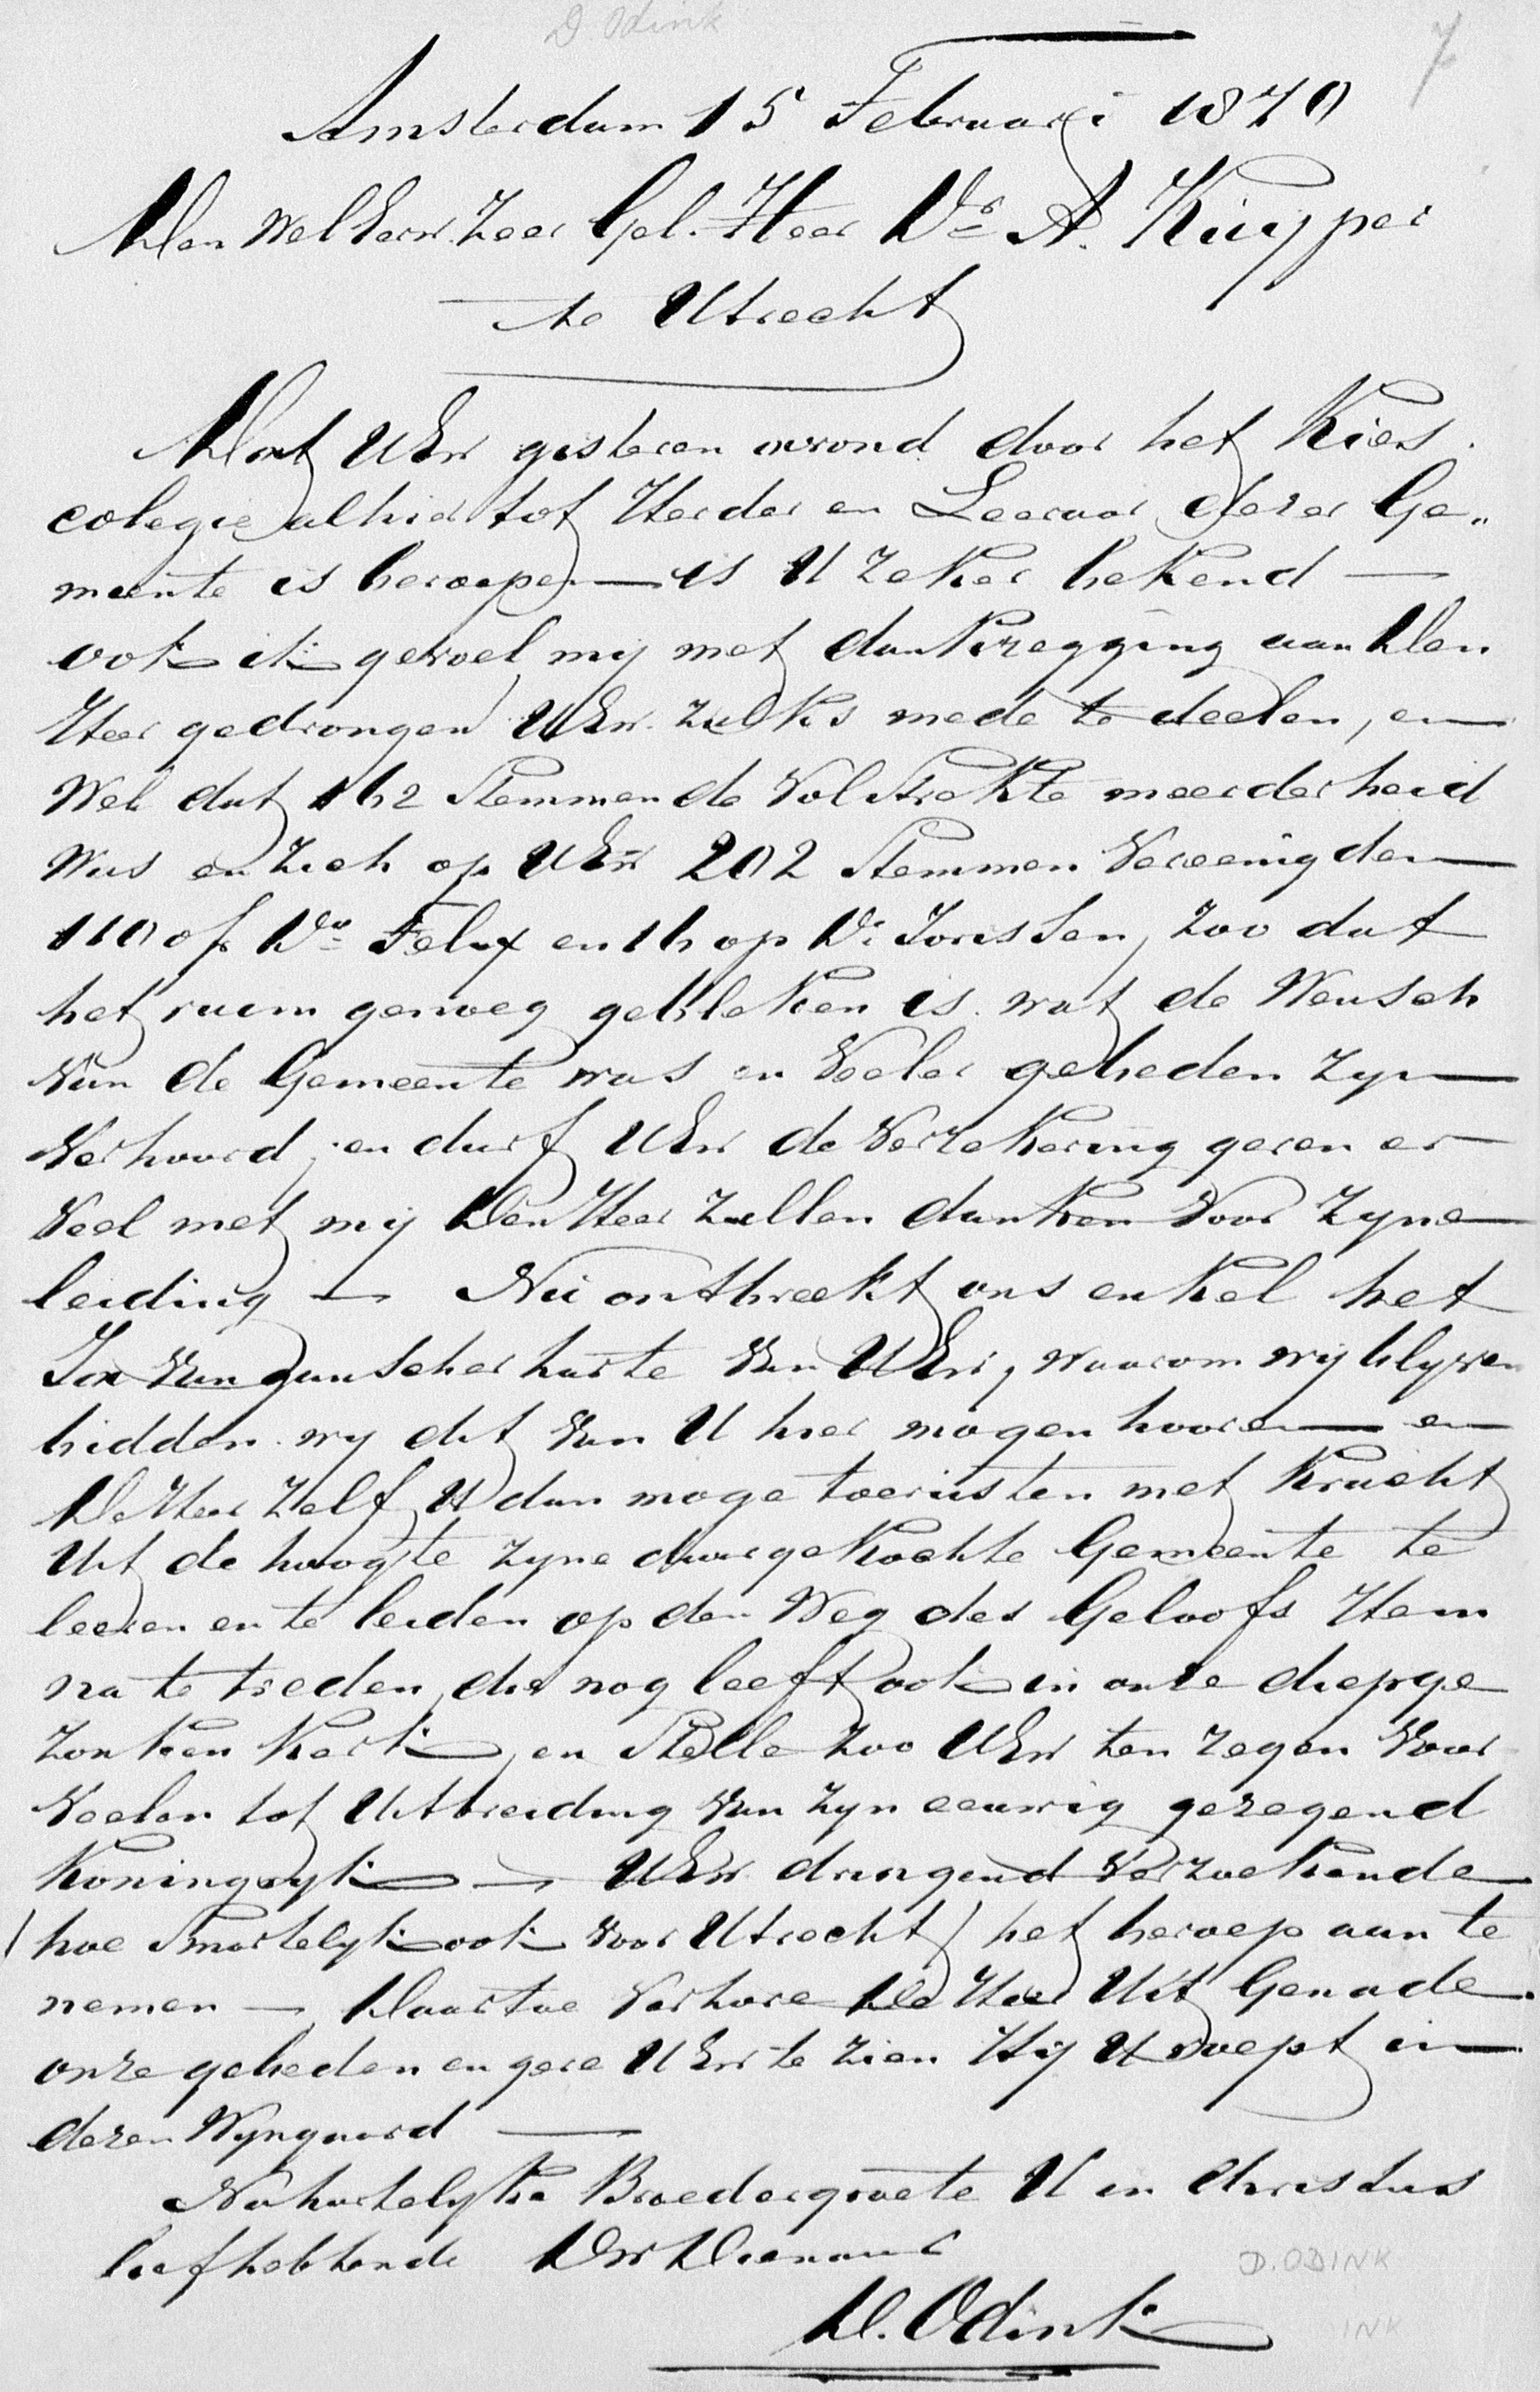 D. Odink
7
Amsterdam 15 Februari 1870
Den WelEerw. Zeer Gel. Heer Dr. A. Kuyper
te Utrecht
Dat UEw gisteren avond door het Kies.
colegie alhier tot Herder en Leeraar dezer Ge„
meente is beroepen — is U zeker bekend —
ook ik gevoel my met dankzegging aan Den
Heer gedrongen UEw. zulks mede te deelen, en
Wel dat 162 Stemmen de Volstrekte meerderheid
Was en zich op UEw 202 Stemmen Vereenigden
110 op Ds Felix en 16 op Ds Jorissen, zoo dat
het ruim genoeg gebleken is. wat de Wensch
Van de Gemeente was en Veeler gebeden zyn
Verhoord, en durf UEw de Verzekering geven er
Veel met mij Den Heer zullen danken Voor zyne
leiding — Nu ontbreekt ons enkel het
Ja Van ganscher harte Van UEw, waarom wij blyven
bidden. wy dit Van U hier mogen hooren en
De Heer zelf U dan moge toerusten met Kracht
Uit de hoogte zyne duurgekochte Gemeente te
leeren en te leiden op den Weg des Geloofs Hem
na te treden, die nog leeft ook in onze diepge
zonken Kerk, en Stelle zoo UEw ten zegen Voor
Veelen tot Uitbreiding Van zyn eeuwig gezegend
Koningryk — UEw. dringend Verzoekende
(hoe Smartelyk ook Voor Utrecht) het beroep aan te
nemen — Daartoe Verhore De Heer Uit Genade.
onze gebeden en geve UEw te zien Hij U roept in
dezen Wyngaard —
Na hartelyke Broedergroete U in Christus
liefhebbende DwDienaar
D. Odink
D. ODINK
INK